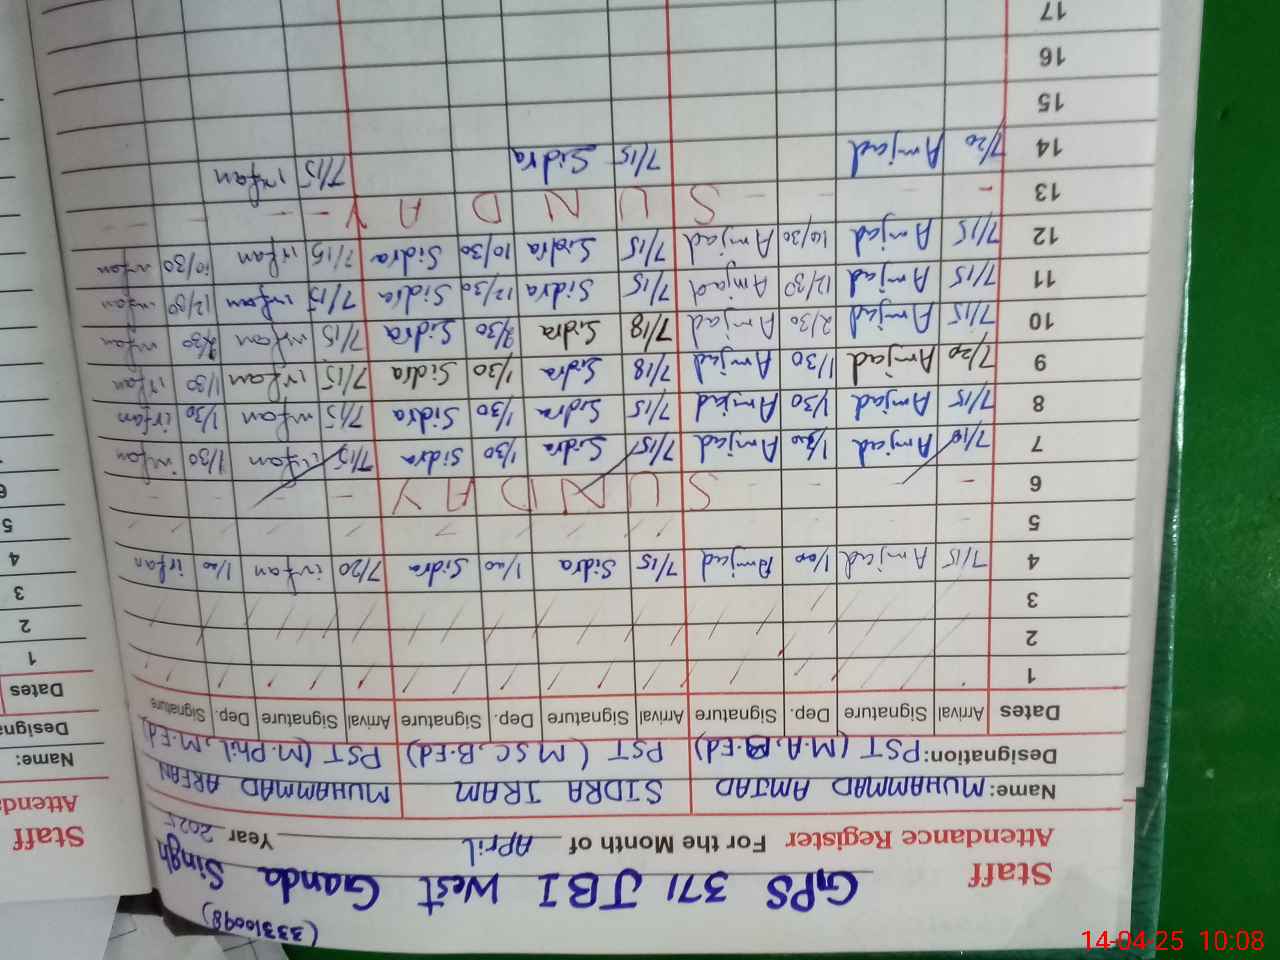 (33310098)
GPS 371 JBI West Ganda Singh
Staff
Attendance Register For the Month of April Year 2025
Name: MUHAMMAD AMJAD SIDRA IRAM MUHAMMAD ARFAN
Designation: PST (M.A, B.Ed) PST (MSC, B.Ed) PST (M.Phil, M.Ed)
Dates Arrival Signature Dep. Signature Arrival Signature Dep. Signature Arrival Signature Dep. Signature
1
2
3
4 7/15 Amjad 1/00 Amjad 7/15 Sidra 1/00 Sidra 7/20 irfan 1/00 irfan
5
6 SUNDAY
7 7/10 Amjad 1/30 Amjad 7/15 Sidra 1/30 Sidra 7/15 irfan 1/30 irfan
8 7/15 Amjad 1/30 Amjad 7/15 Sidra 1/30 Sidra 7/15 irfan 1/30 irfan
9 7/20 Amjad 1/30 Amjad 7/18 Sidra 1/30 Sidra 7/15 irfan 1/30 irfan
10 7/15 Amjad 2/30 Amjad 7/18 Sidra 2/30 Sidra 7/15 irfan 2/30 irfan
11 7/15 Amjad 12/30 Amjad 7/15 Sidra 12/30 Sidra 7/15 irfan 12/30 irfan
12 7/15 Amjad 10/30 Amjad 7/15 Sidra 10/30 Sidra 7/15 irfan 10/30 irfan
13 SUNDAY
14 7/20 Amjad 7/15 Sidra 7/15 irfan
15
16
17
Staff
Attenda
Name:
Designa
Dates
1
2
3
4
5
6
14-04-25 10:08